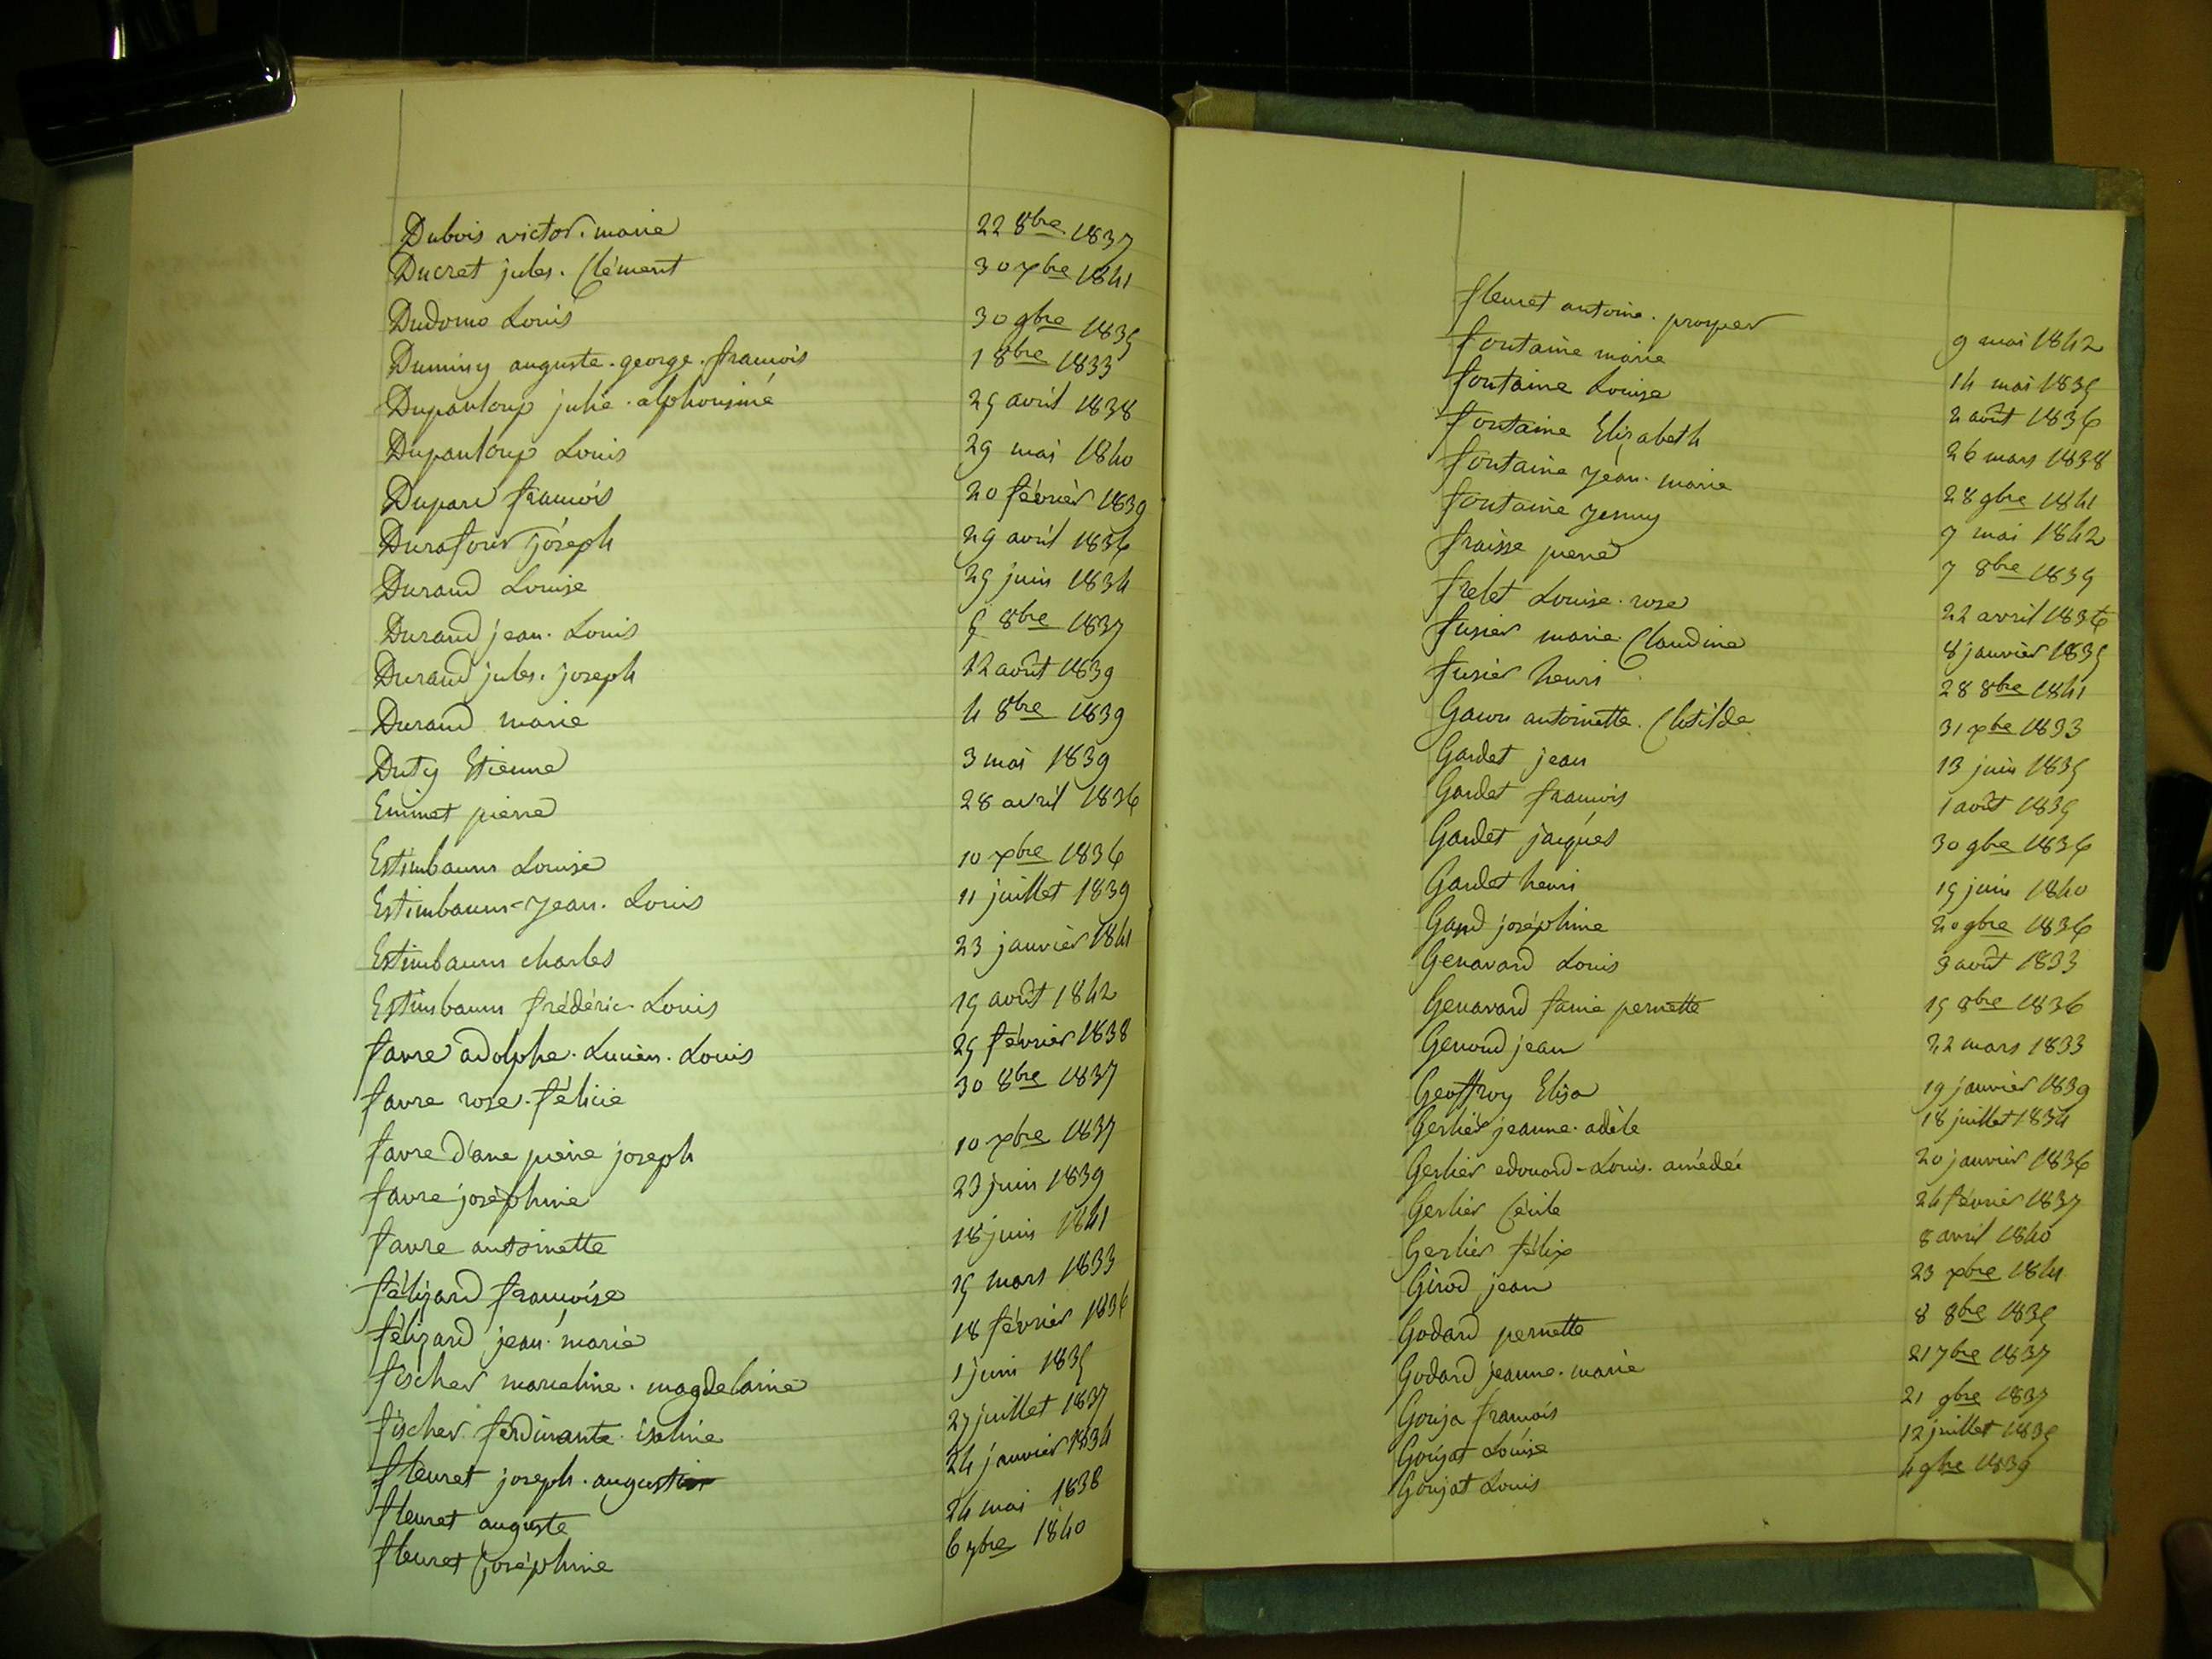 Dubois victor. marie 22 8bre 1837
Ducret jules. Clément 30 xbre 1841
Dudomo Louis 30 9bre 1835
Duminy auguste. george. françois 1 8bre 1833
Dupanloup julie. alphonsine 25 avril 1838
Dupanloup Louis 29 mai 1840
Duparc françois 20 février 1839
Durafour joseph 29 avril 1836
Durand Louise 25 juin 1834
Durand jean. Louis 5 8bre 1837
Durand jules. joseph 12 août 1839
Durand marie 4 8bre 1839
Duty Etienne 3 mai 1839
Emimet pierre 28 avril 1836
Estimbaum Louise 10 xbre 1836
Estimbaum-jean. Louis 11 juillet 1839
Estimbaum charles 23 janvier 1841
Estimbaum frédéric Louis 15 août 1842
favre adolphe. Lucien. Louis 25 février 1838
favre rose. félicie 30 8bre 1837
favre d'ane pierre joseph 10 xbre 1837
favre joséphine 23 juin 1839
favre antoinette 18 juin 1841
félizard françoise 15 mars 1833
félizard jean. marie 18 février 1836
fischer marceline. magdelaine 1 juin 1835
fischer ferdinante isaline 27 juillet 1837
fleuret joseph. augustin 24 janvier 1834
fleuret auguste 24 mai 1838
fleuret joséphine 6 7bre 1840
fleuret antoine. prosper 9 mai 1842
fontaine marie 14 mai 1835
fontaine Louise 2 août 1836
fontaine Elizabeth 26 mars 1838
fontaine jean. marie 28 9bre 1841
fontaine jenny 7 mai 1842
fraisse pierre 7 8bre 1839
frelet Louise. rose 22 avril 1836
fusier marie Claudine 8 janvier 1835
fusier henri 28 8bre 1841
Gacon antoinette. Clotilde 31 xbre 1833
Gardet jean 13 juin 1835
Gardet françois 1 août 1835
Gardet jacques 30 9bre 1836
Gardet henri 15 juin 1840
Gand joséphine 20 9bre 1836
Genavard Louis 3 août 1833
Genavard fanie pernette 15 8bre 1836
Genoud jean 22 mars 1833
Geoffroy Elisa 19 janvier 1839
Gerlier jeanne. adèle 18 juillet 1834
Gerlier edouard-Louis. amédée 20 janvier 1836
Gerlier Cécile 24 février 1837
Gerlier félix 8 avril 1840
Girod jean 23 xbre 1841
Godard pernette 8 8bre 1835
Godard jeanne. marie 21 7bre 1837
Gouja françois 21 9bre 1837
Goujat Louise 12 juillet 1835
Goujat Louis 4 9bre 1839